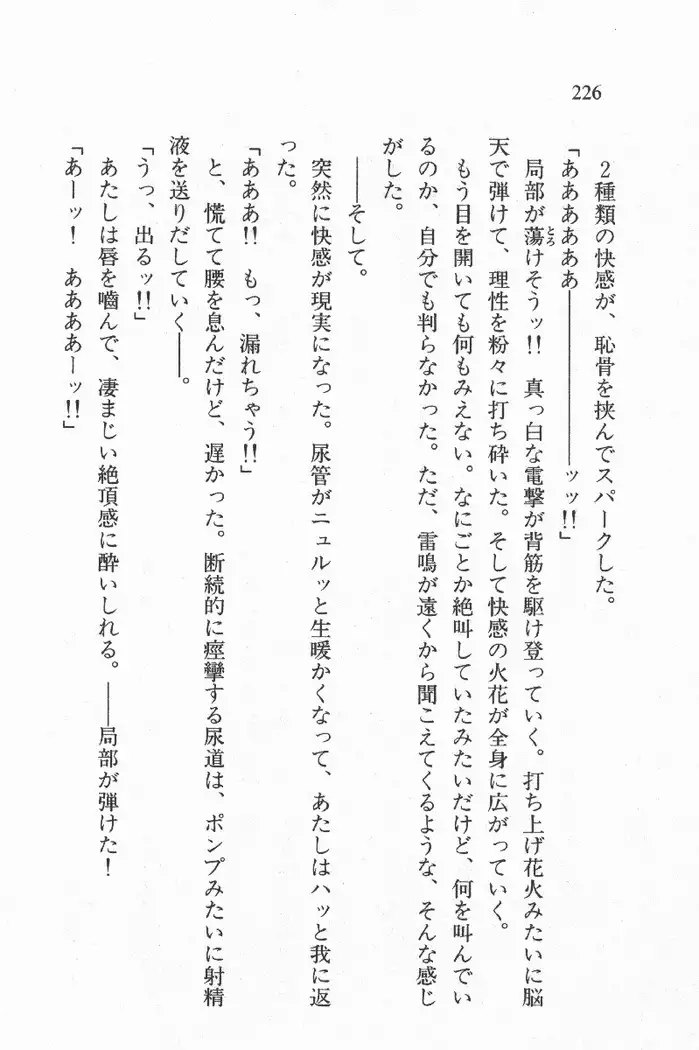 226
2種類の快感が、恥骨を挟んでスパークした。
「ああああああ――――――ッッ!!」
局部が蕩けそうッ!! 真っ白な電撃が背筋を駆け登っていく。打ち上げ花火みたいに脳
とろ
天で弾けて、理性を粉々に打ち砕いた。そして快感の火花が全身に広がっていく。
もう目を開いても何もみえない。なにごとか絶叫していたみたいだけど、何を叫んでい
るのか、自分でも判らなかった。ただ、雷鳴が遠くから聞こえてくるような、そんな感じ
がした。
――そして。
突然に快感が現実になった。尿管がニュルッと生暖かくなって、あたしはハッと我に返
った。
「あああ!! もっ、漏れちゃう!!」
と、慌てて腰を息んだけど、遅かった。断続的に痙攣する尿道は、ポンプみたいに射精
液を送りだしていく――。
「うっ、出るッ!!」
あたしは唇を嚙んで、凄まじい絶頂感に酔いしれる。――局部が弾けた!
「あーッ! ああああーッ!!」